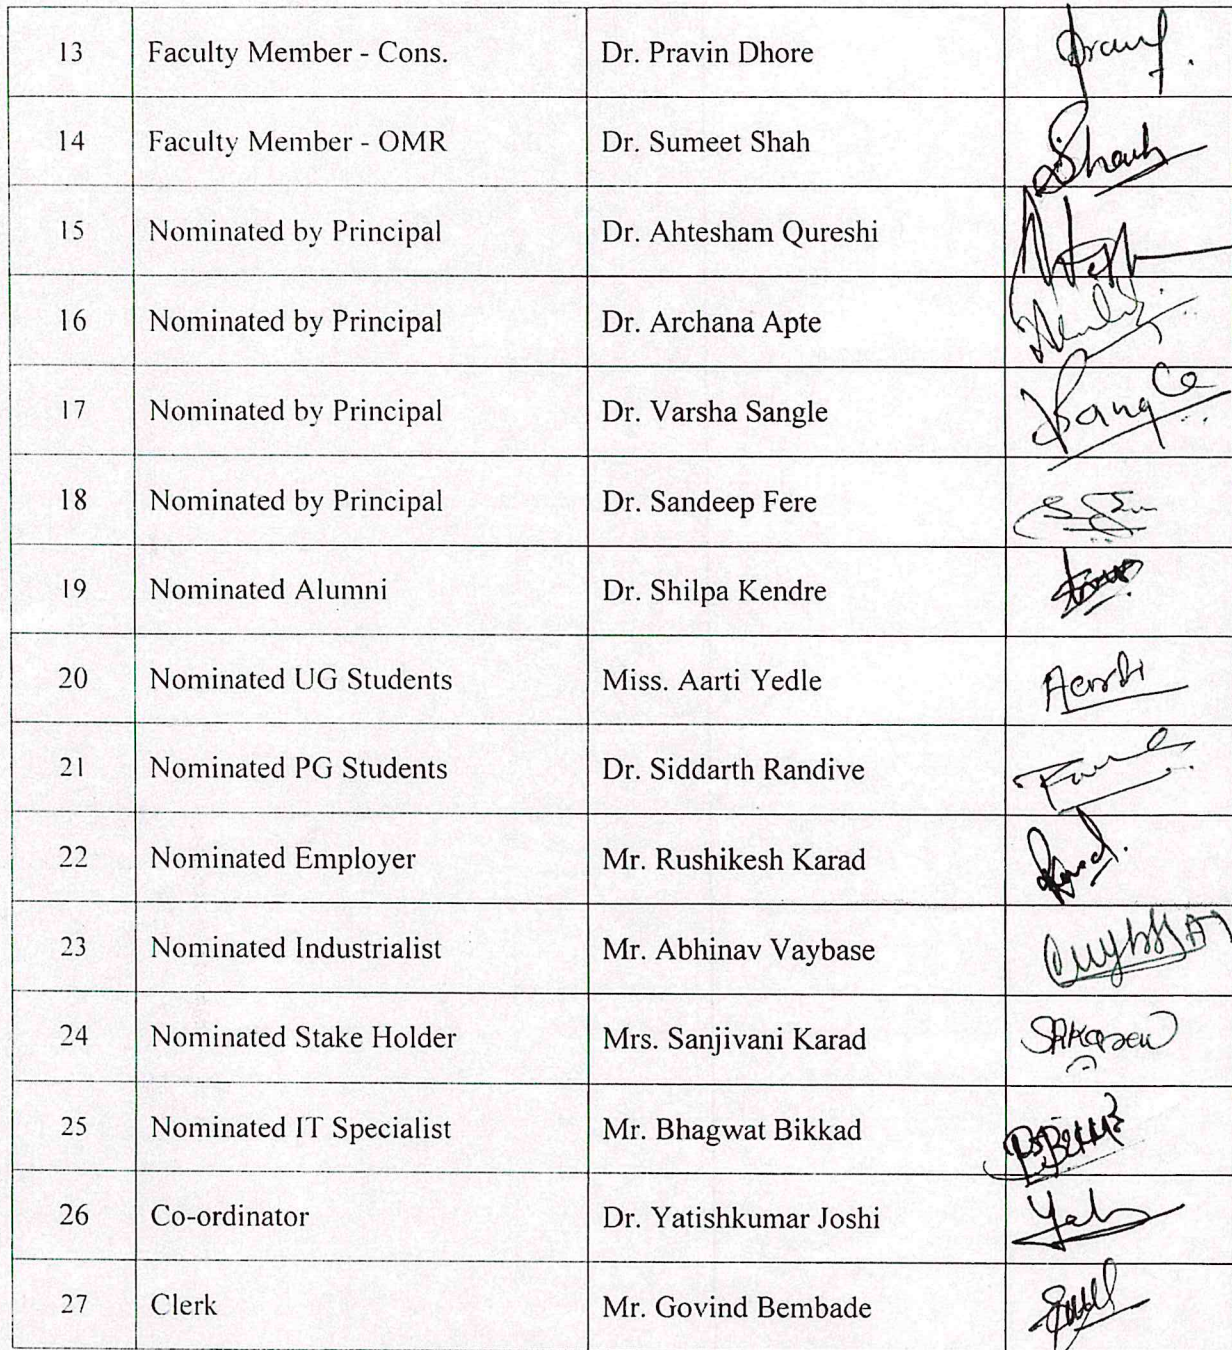 13 Faculty Member - Cons. Dr. Pravin Dhore
14 Faculty Member - OMR Dr. Sumeet Shah
15 Nominated by Principal Dr. Ahtesham Qureshi
16 Nominated by Principal Dr. Archana Apte
17 Nominated by Principal Dr. Varsha Sangle
18 Nominated by Principal Dr. Sandeep Fere
19 Nominated Alumni Dr. Shilpa Kendre
20 Nominated UG Students Miss. Aarti Yedle
21 Nominated PG Students Dr. Siddarth Randive
22 Nominated Employer Mr. Rushikesh Karad
23 Nominated Industrialist Mr. Abhinav Vaybase
24 Nominated Stake Holder Mrs. Sanjivani Karad
25 Nominated IT Specialist Mr. Bhagwat Bikkad
26 Co-ordinator Dr. Yatishkumar Joshi
27 Clerk Mr. Govind Bembade